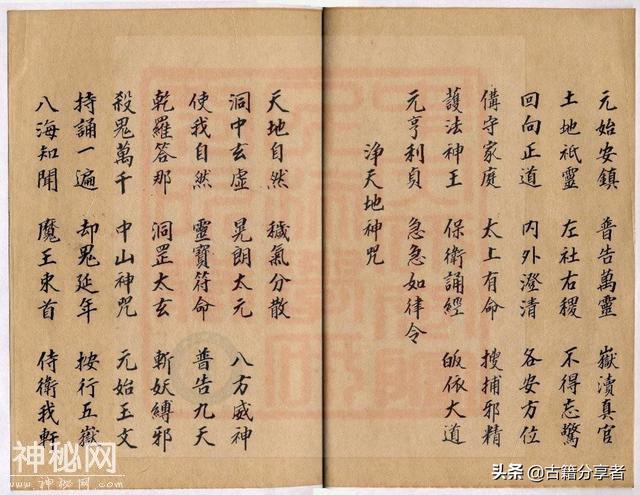 元始安鎮 普告萬靈 嶽瀆真官
土地祇靈 左社右稷 不得忘驚
回向正道 內外澄清 各安方位
備守家庭 太上有命 搜捕邪精
護法神王 保衛誦經 皈依大道
元亨利貞 急急如律令
淨天地神咒
天地自然 穢氣分散
洞中玄虛 晃朗太元 八方威神
使我自然 靈寶符命 普告九天
乾羅答那 洞罡太玄 斬妖縛邪
殺鬼萬千 中山神咒 元始玉文
持誦一遍 却鬼延年 按行五嶽
八海知聞 魔王束首 侍衛我軒
神秘网
头条 @古籍分享者